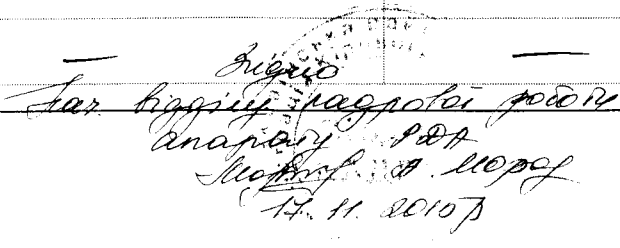 — Згідно —
Нач відділу кадрової роботи
апарату РДА
А. Мороз
17.11.2010р